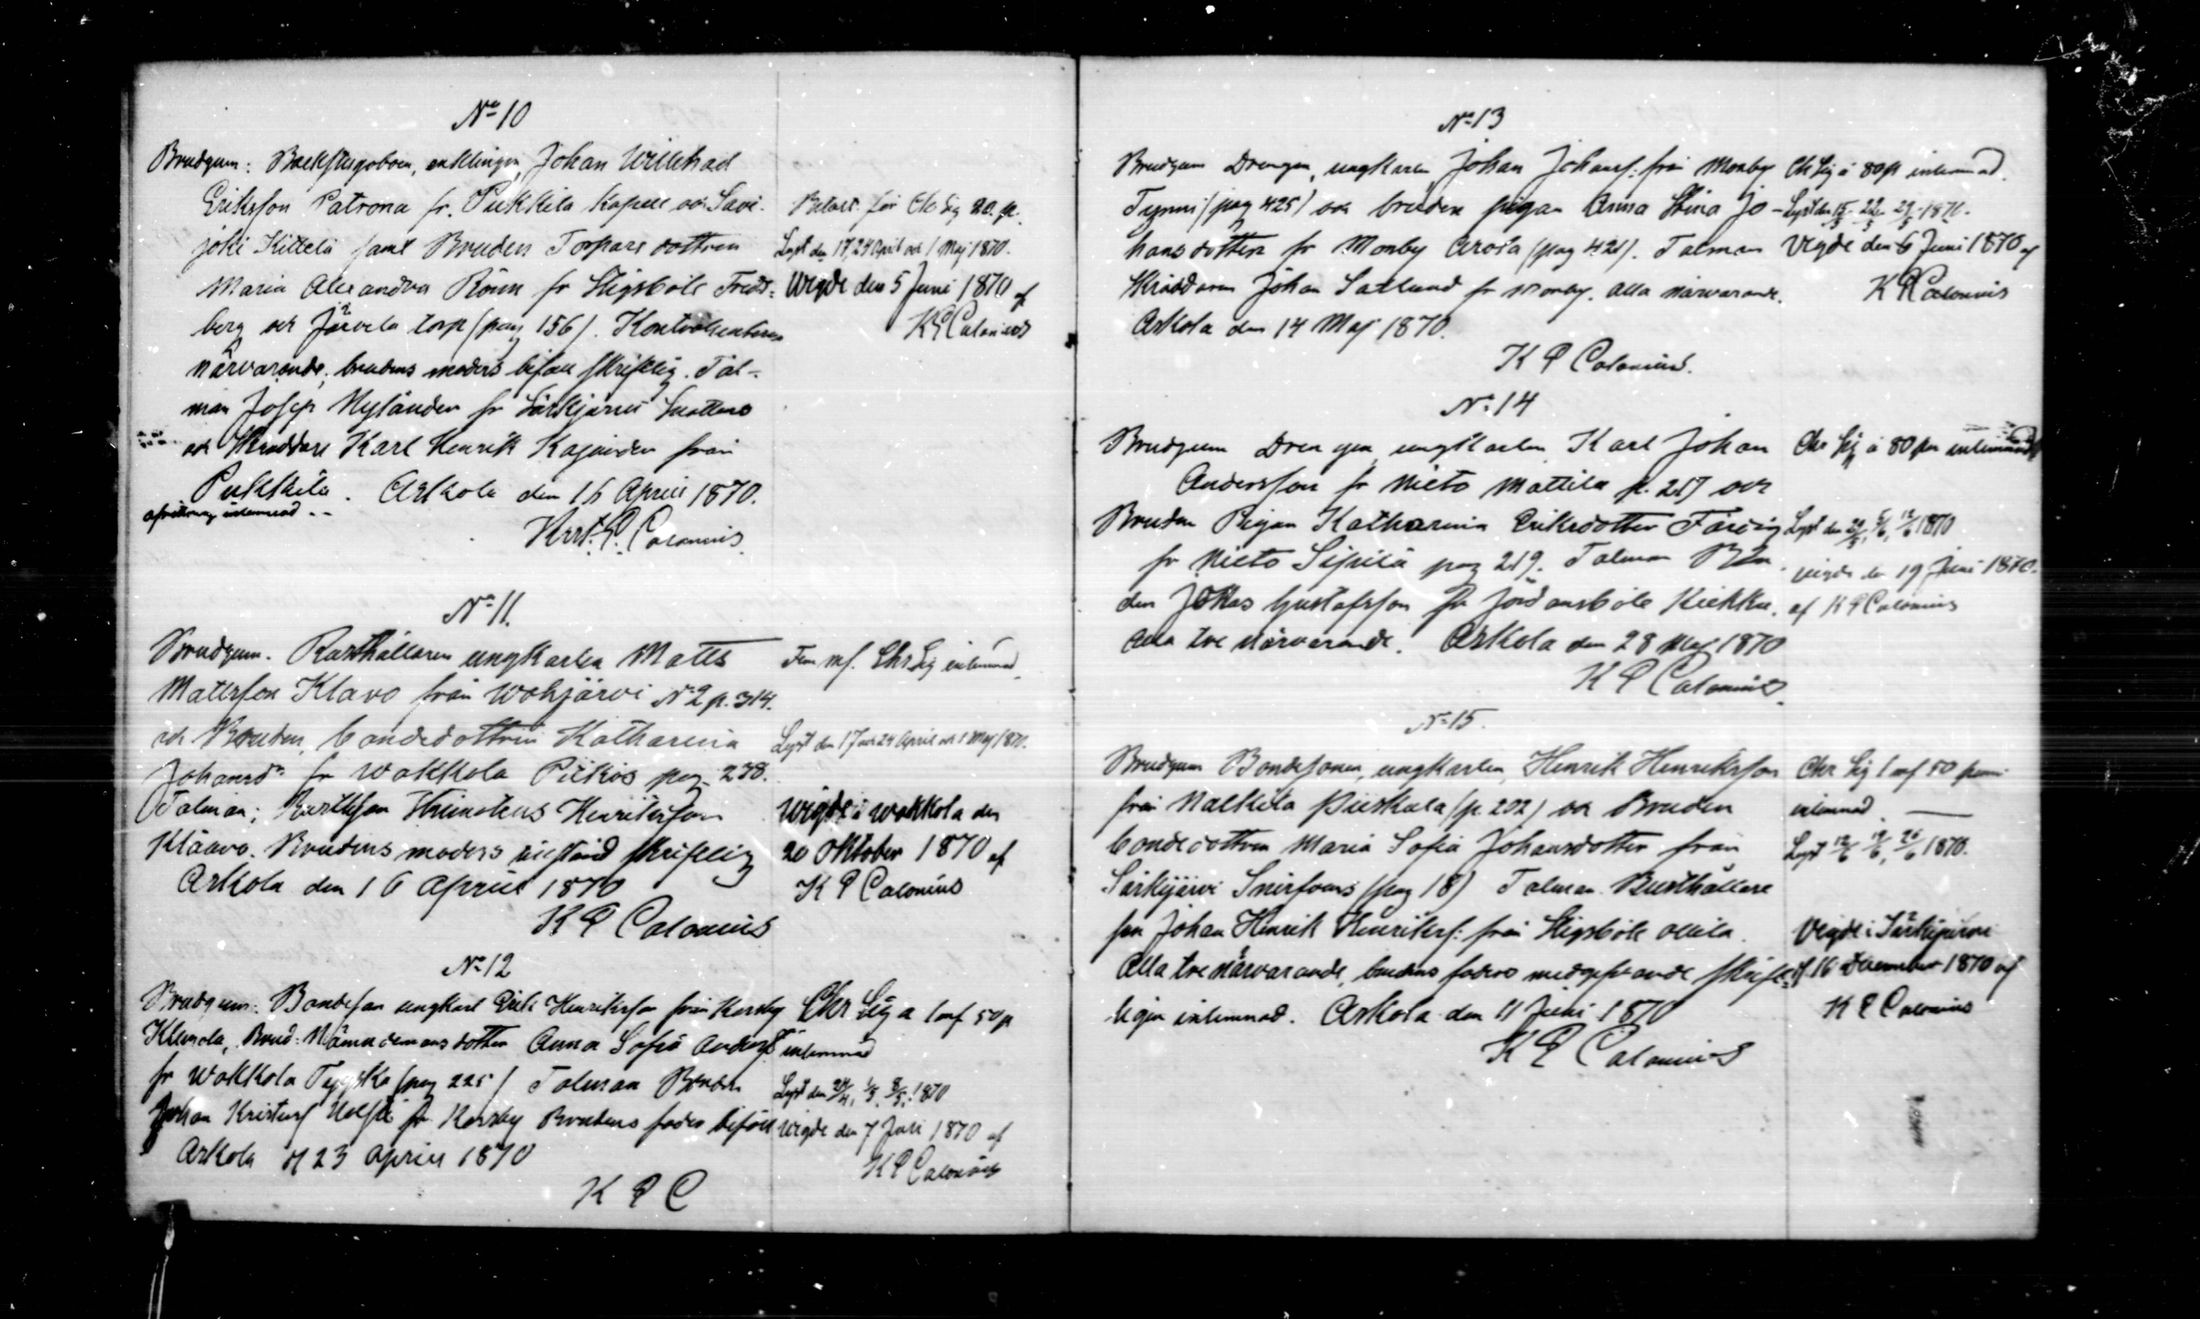 No 10
Brudgum: Backstugobon, enklingen, Johan Willehad
Eriksson Patrona fr. Pukkila Kapell och Savi-
joki Kittelä samt Bruden Torpare dottren
Maria Alexandra Rönn fr Stigsböle Freds-
berg och Järvela torp (pag 156). Kontrahenterna
närvarande, brudens moders bifall skriftlig. Tal-
man Josep Nylander fr Särkjärvi
och Skräddare Karl Henrik Kajander från
Pukkila. Askola den 16 April 1870.
inlemnad
Krist. P. Calonius
Betalt för Chr Sig 20 p.
Lyst den 17, 24 April och 1 Maj 1870.
Vigde den 5 Juni 1870 af
K P Calonius
No 11.
Brudgum. Rusthållaren ungkarlen Matts
Mattsson Klavo från Wahijärvi No 2 p. 314.
och Bruden, bondedottren Katharina
Johansdr fr Wakkola Piikos pag 238.
Talman: Rusth son Henriksson
Klaavo. Brudens moders skriftlig
Askola den 16 April 1870
K P Calonius
mf. Chr Sig inlemnad
Lyst den 17 och 24 April och 1 Maj 1870.
Vigde i Wakkola den
20 Oktober 1870 af
K P Calonius
No 12
Brudgum: Bondeson ungkarl Erik Henriksson från Korsby
Klemola, Brud: Nämndemansdotter Anna Sofia Andersd
fr Wakkola Tyyskä (pag 225) Talman Bonden
Johan Kristers fr Korsby Brudens faders bifall
Askola d 23 April 1870
K P C
Chr Sig a 1 mf 50 p
inlemnad
Lyst den 24/4, 1/5, 8/5, 1870
Vigde den 7 Juli 1870 af
K P Calonius
No 13
Brudgum Drengen, ungkarlen Johan Johanss: från Monby
Tynni (pag 425) och bruden pigan Anna Stina Jo-
hansdotter fr Monby Arola (pag 421). Talman
Skräddaren Johan Saxlund fr Monby. Alla närvarande.
Askola den 14 Maj 1870.
K P Calonius.
Chr Sig à 80 p inlemnad.
Lyst den 15/5 22/5 29/5 1870.
Vigde den 6 Juni 1870 af
K P Calonius
No 14
Brudgum Drengen, ungkarlen Karl Johan
Andersson fr Nieto Mattila p. 217 och
Bruden Pigan Katharina Eriksdotter
fr Nieto Sipilä pag 219. Talman Bon-
den Jonas Gustafsson fr Jordansböle Kiekka.
Alla tre närvarande. Askola den 28 Maj 1870
K P Calonius
Chr Sig à 80 pen inlemnad
Lyst den 29/5, 5/6, 12/6 1870
vigde den 19 Juni 1870.
af K P Calonius
No 15.
Brudgum Bondesonen, ungkarlen, Henrik Henriksson
från Nalkkila Piiskula (p. 202) och Bruden
bondedottren Maria Sofia Johansdotter från
Särkijärvi (pag 18) Talman Rusthållare
son Johan Henrik Henrikss: från Stigsböle Ollila.
Alla tre närvarande, brudens faders medgifvande skrift-
ligen inlemnad. Askola den 11 Juni 1870
K P Calonius
Chr Sig 1 mf 50 penni
inlemnad.
Lyst 12/6 19/6, 26/6 1870.
Vigde i Särkijärvi
d 16 December 1870 af
K P Calonius